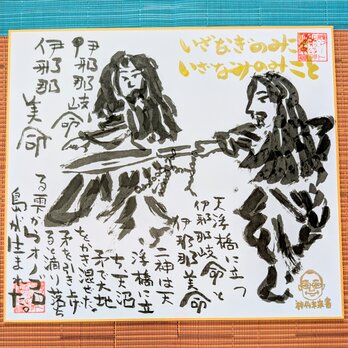 いざなぎのみこ
いざなみのみこと
伊那那岐命
伊那那美命
天浮橋に立つ
伊那那岐命と
伊那那美命
二神は天
浮橋に立
ち、天沼
矛で大地
をかき混ぜた。
矛を引き上げ
ると滴り落ち
る雫からオノコロ
島が生まれた。